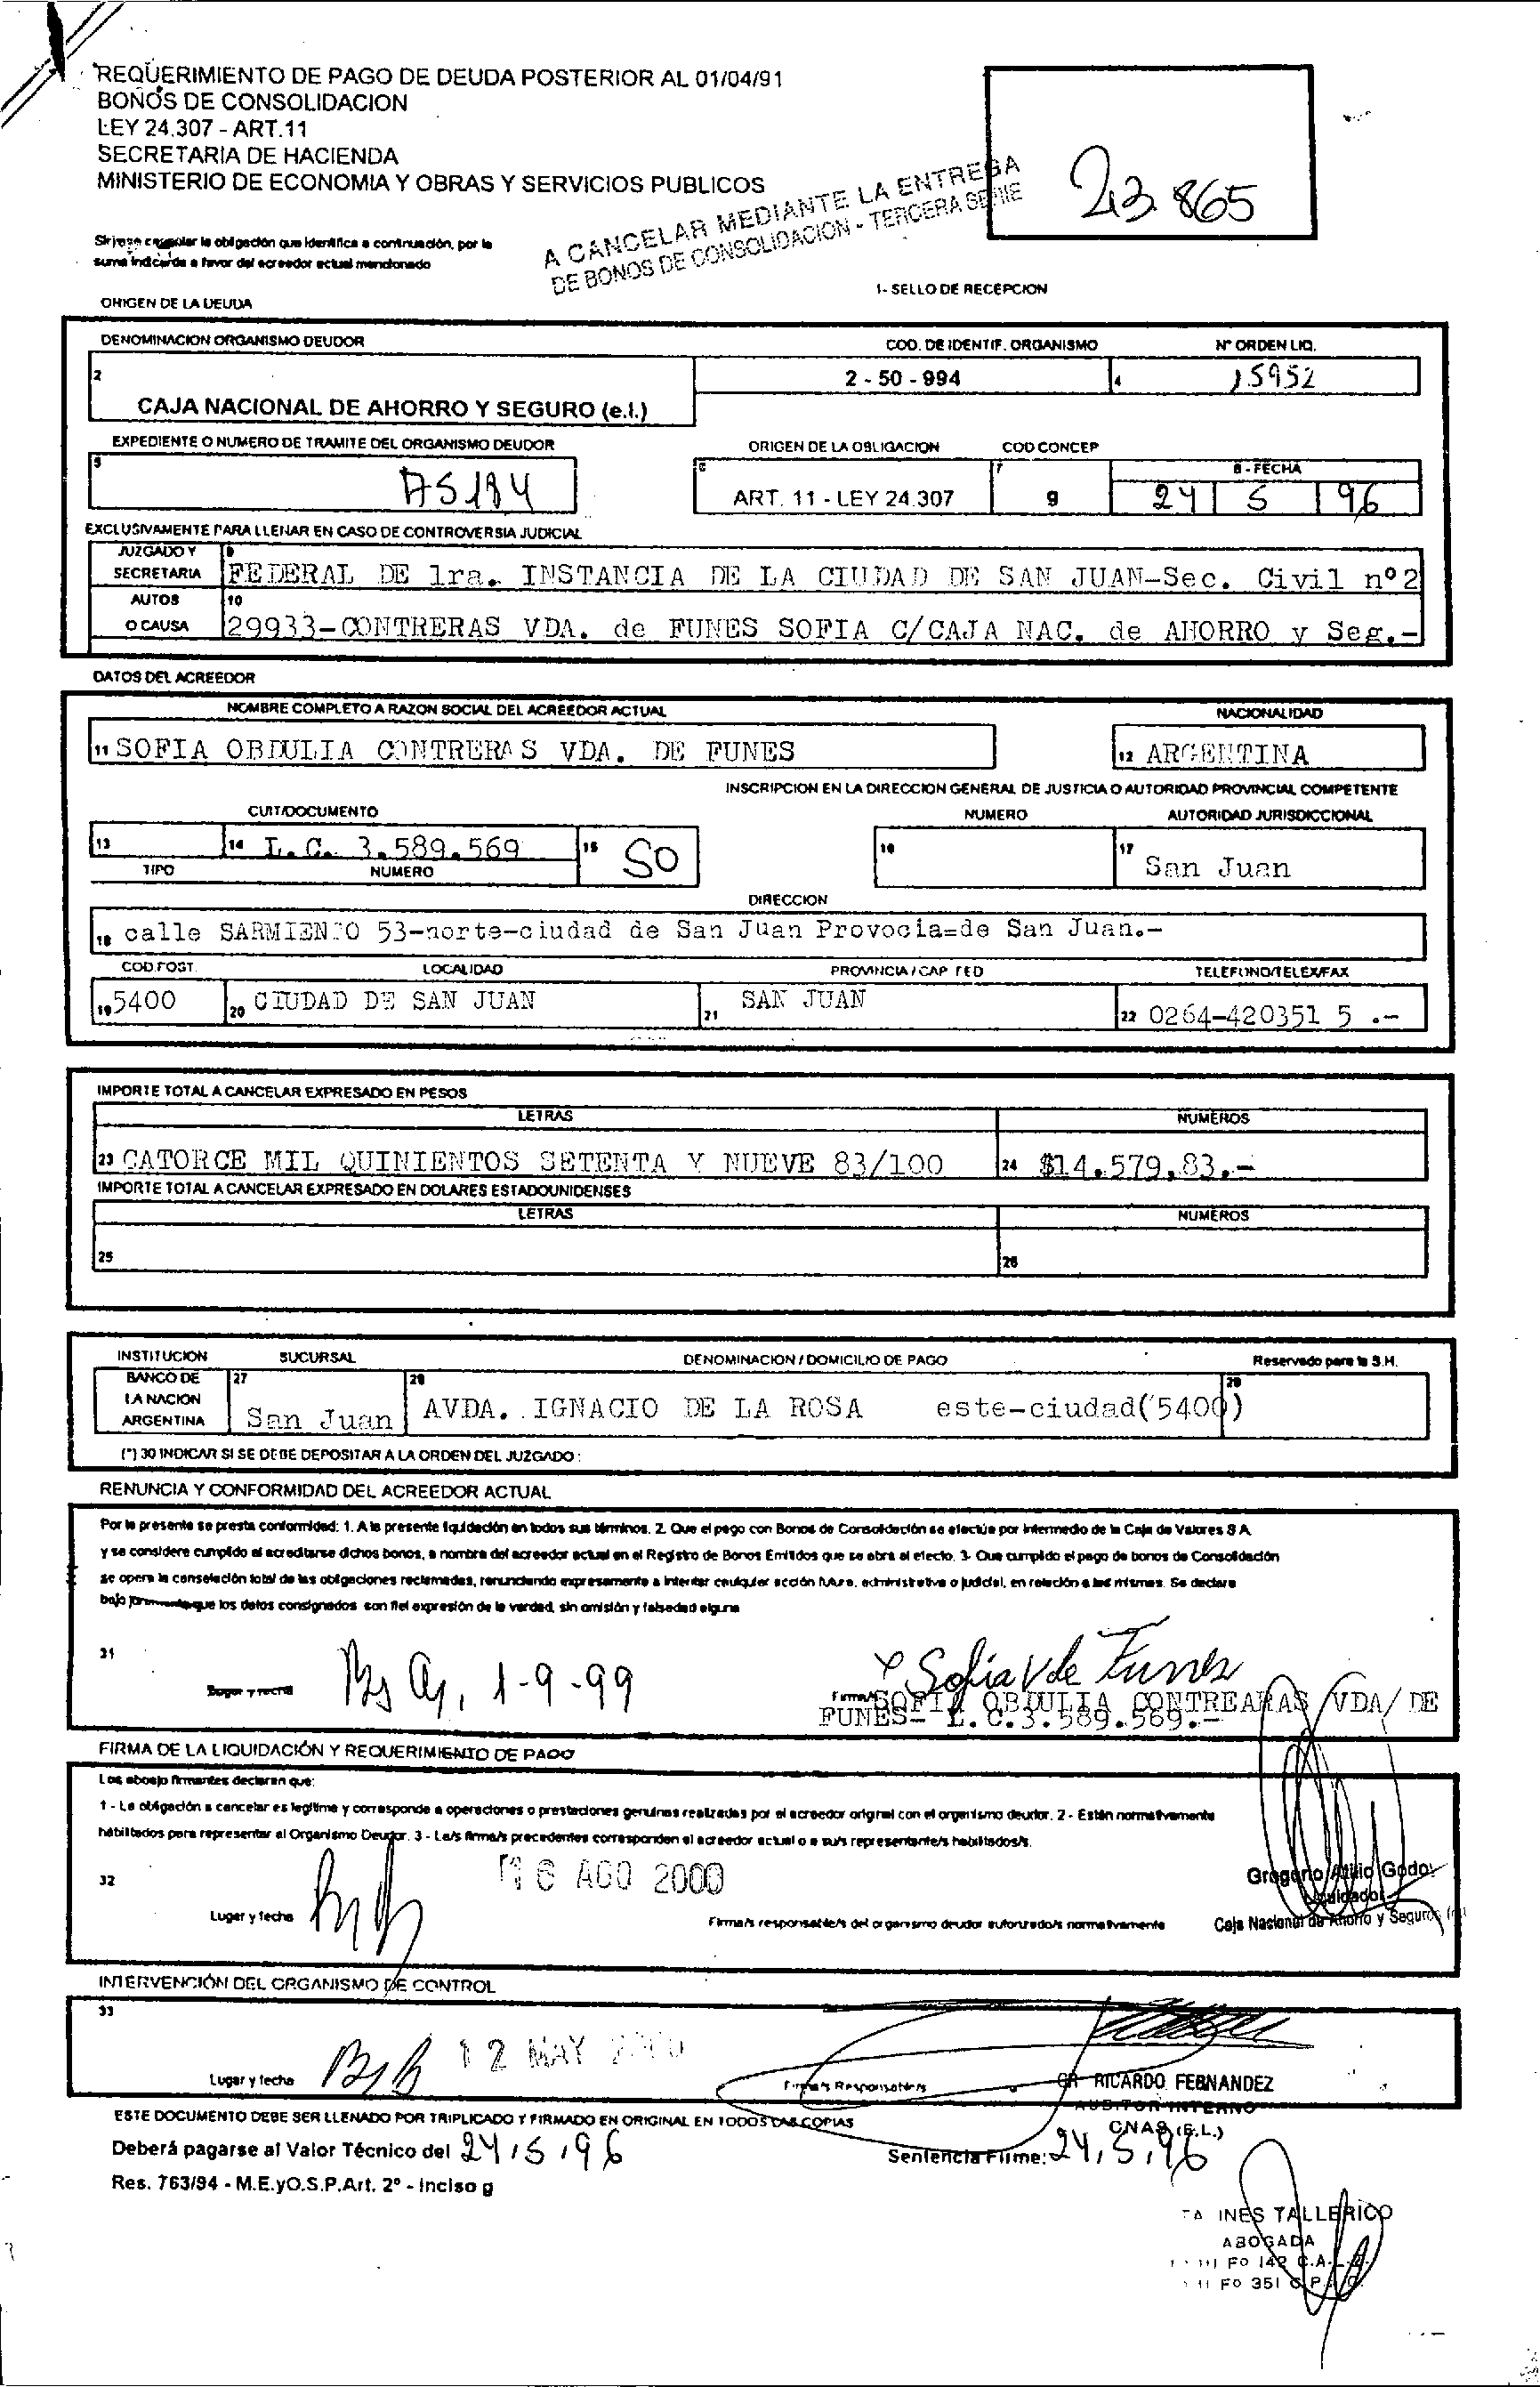 REQUERIMIENTO DE PAGO DE DEUDA POSTERIOR AL 01/04/91
BONOS DE CONSOLIDACION
LEY 24.307 - ART.11
SECRETARIA DE HACIENDA
MINISTERIO DE ECONOMIA Y OBRAS Y SERVICIOS PUBLICOS
23.865
A CANCELAR MEDIANTE LA ENTREGA
DE BONOS DE CONSOLIDACION - TERCERA SERIE
Sirvase cancelar la obligación que identifica a continuación, por la
suma indicada a favor del acreedor actual mencionado
1- SELLO DE RECEPCION
ORIGEN DE LA DEUDA
DENOMINACION ORGANISMO DEUDOR COD. DE IDENTIF. ORGANISMO N° ORDEN LIQ.
2 CAJA NACIONAL DE AHORRO Y SEGURO (e.l.) 2 - 50 - 994 4 15952
EXPEDIENTE O NUMERO DE TRAMITE DEL ORGANISMO DEUDOR ORIGEN DE LA OBLIGACION COD CONCEP 8 - FECHA
5 A5184 6 ART. 11 - LEY 24.307 7 9 24 5 96
EXCLUSIVAMENTE PARA LLENAR EN CASO DE CONTROVERSIA JUDICIAL
JUZGADO Y SECRETARIA 9 FEDERAL DE 1ra. INSTANCIA DE LA CIUDAD DE SAN JUAN-Sec. Civil nº2
AUTOS O CAUSA 10 29933-CONTRERAS VDA. de FUNES SOFIA C/CAJA NAC. de AHORRO y Seg.-
DATOS DEL ACREEDOR
NOMBRE COMPLETO A RAZON SOCIAL DEL ACREEDOR ACTUAL NACIONALIDAD
11 SOFIA OBDULIA CONTRERAS VDA. DE FUNES 12 ARGENTINA
INSCRIPCION EN LA DIRECCION GENERAL DE JUSTICIA O AUTORIDAD PROVINCIAL COMPETENTE
CUIT/DOCUMENTO NUMERO AUTORIDAD JURISDICCIONAL
13 14 L.C. 3.589.569 15 SO 16 17 San Juan
TIPO NUMERO
DIRECCION
18 calle SARMIENTO 53-norte-ciudad de San Juan Provocia=de San Juan.-
COD.POST. LOCALIDAD PROVINCIA / CAP FED TELEFONO/TELEX/FAX
19 5400 20 CIUDAD DE SAN JUAN 21 SAN JUAN 22 0264-420351 5 .-
IMPORTE TOTAL A CANCELAR EXPRESADO EN PESOS
LETRAS NUMEROS
23 CATORCE MIL QUINIENTOS SETENTA Y NUEVE 83/100 24 $14.579,83.-
IMPORTE TOTAL A CANCELAR EXPRESADO EN DOLARES ESTADOUNIDENSES
LETRAS NUMEROS
25 26
INSTITUCION SUCURSAL DENOMINACION / DOMICILIO DE PAGO Reservado para la S.H.
BANCO DE LA NACION ARGENTINA 27 San Juan 28 AVDA. IGNACIO DE LA ROSA este-ciudad(5400) 29
(*) 30 INDICAR SI SE DEBE DEPOSITAR A LA ORDEN DEL JUZGADO :
RENUNCIA Y CONFORMIDAD DEL ACREEDOR ACTUAL
Por la presente se presta conformidad: 1. A la presente liquidación en todos sus términos. 2. Que el pago con Bonos de Consolidación se efectúe por intermedio de la Caja de Valores S A
y se considere cumplido al acreditarse dichos bonos, a nombre del acreedor actual en el Registro de Bonos Emitidos que se abra al efecto. 3- Que cumplido el pago de bonos de Consolidación
se opera la cancelación total de las obligaciones reclamadas, renunciando expresamente a intentar cualquier acción futura, administrativa o judicial, en relación a las mismas. Se declara
bajo juramento que los datos consignados son fiel expresión de la verdad, sin omisión y falsedad alguna
31 Bs As, 1-9-99 Sofia V de Funes
Lugar y fecha Firma/s SOFIA OBDULIA CONTREARAS VDA/ DE
FUNES- L.C.3.589.569.-
FIRMA DE LA LIQUIDACIÓN Y REQUERIMIENTO DE PAGO
Los abosjo firmantes declaran que:
1 - La obligación a cancelar es legítima y corresponde a operaciones o prestaciones genuinas realizadas por el acreedor original con el organismo deudor. 2 - Están normativamente
habilitados para representar al Organismo Deudor. 3 - La/s firma/s precedentes corresponden al acreedor actual o a su/s representante/s habilitados/s.
32 16 AGO 2000
Gregorio Atilio Godoy
Liquidador
Lugar y fecha Firma/s responsable/s del organismo deudor autorizado/s normativamente Caja Nacional de Ahorro y Seguro
INTERVENCIÓN DEL ORGANISMO DE CONTROL
33
Bs As 12 MAY
Lugar y fecha Firma/s Responsable/s CR RICARDO FERNANDEZ
AUDITOR INTERNO
CNAS (E.L.)
ESTE DOCUMENTO DEBE SER LLENADO POR TRIPLICADO Y FIRMADO EN ORIGINAL EN TODOS LAS COPIAS
Deberá pagarse al Valor Técnico del 24/5/96 Sentencia Firme: 24/5/96
Res. 763/94 - M.E.yO.S.P.Art. 2° - inciso g
INES TALLERICO
ABOGADA
Fº 142 C.A.
Fº 351